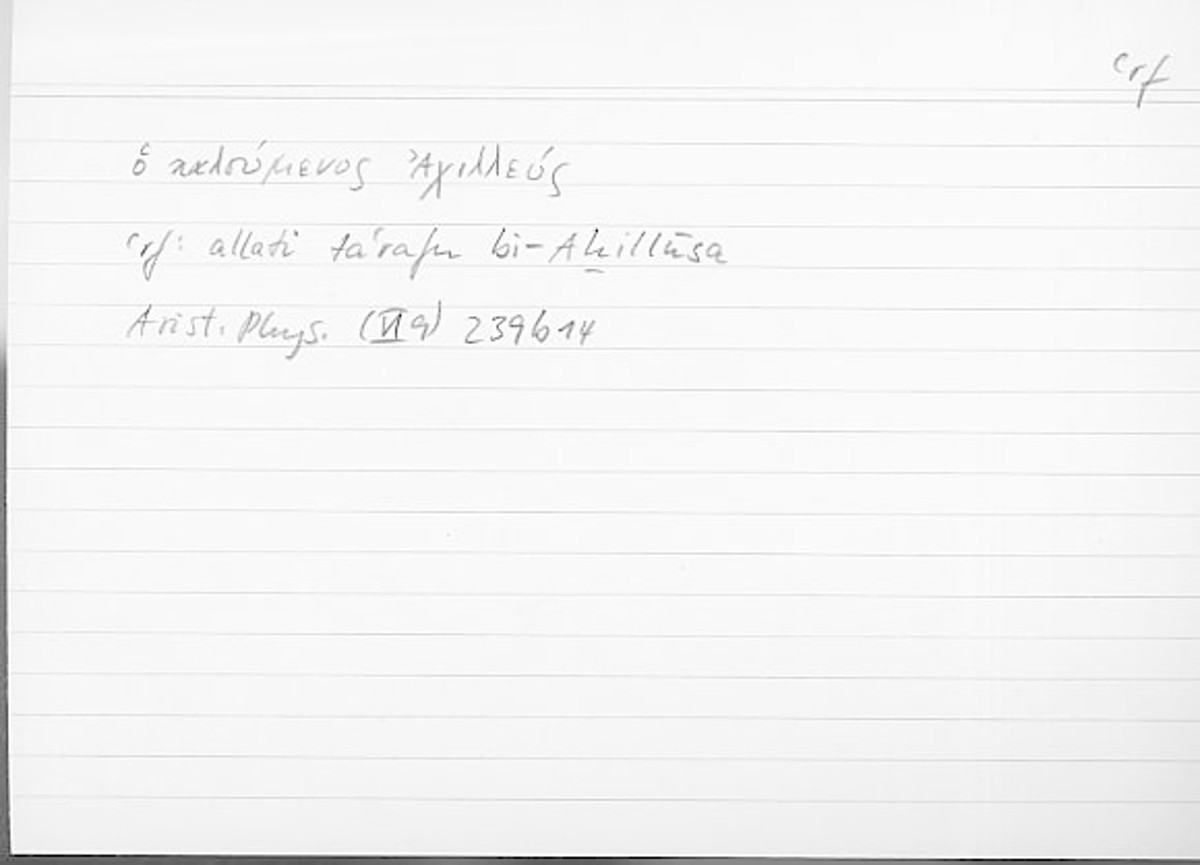 ʿrf
ὁ καλούμενος Ἀχιλλεύς
ʿrf: allati taʿrafu bi-Aḫillūsa
Arist. Phys. (VI 9) 239b14